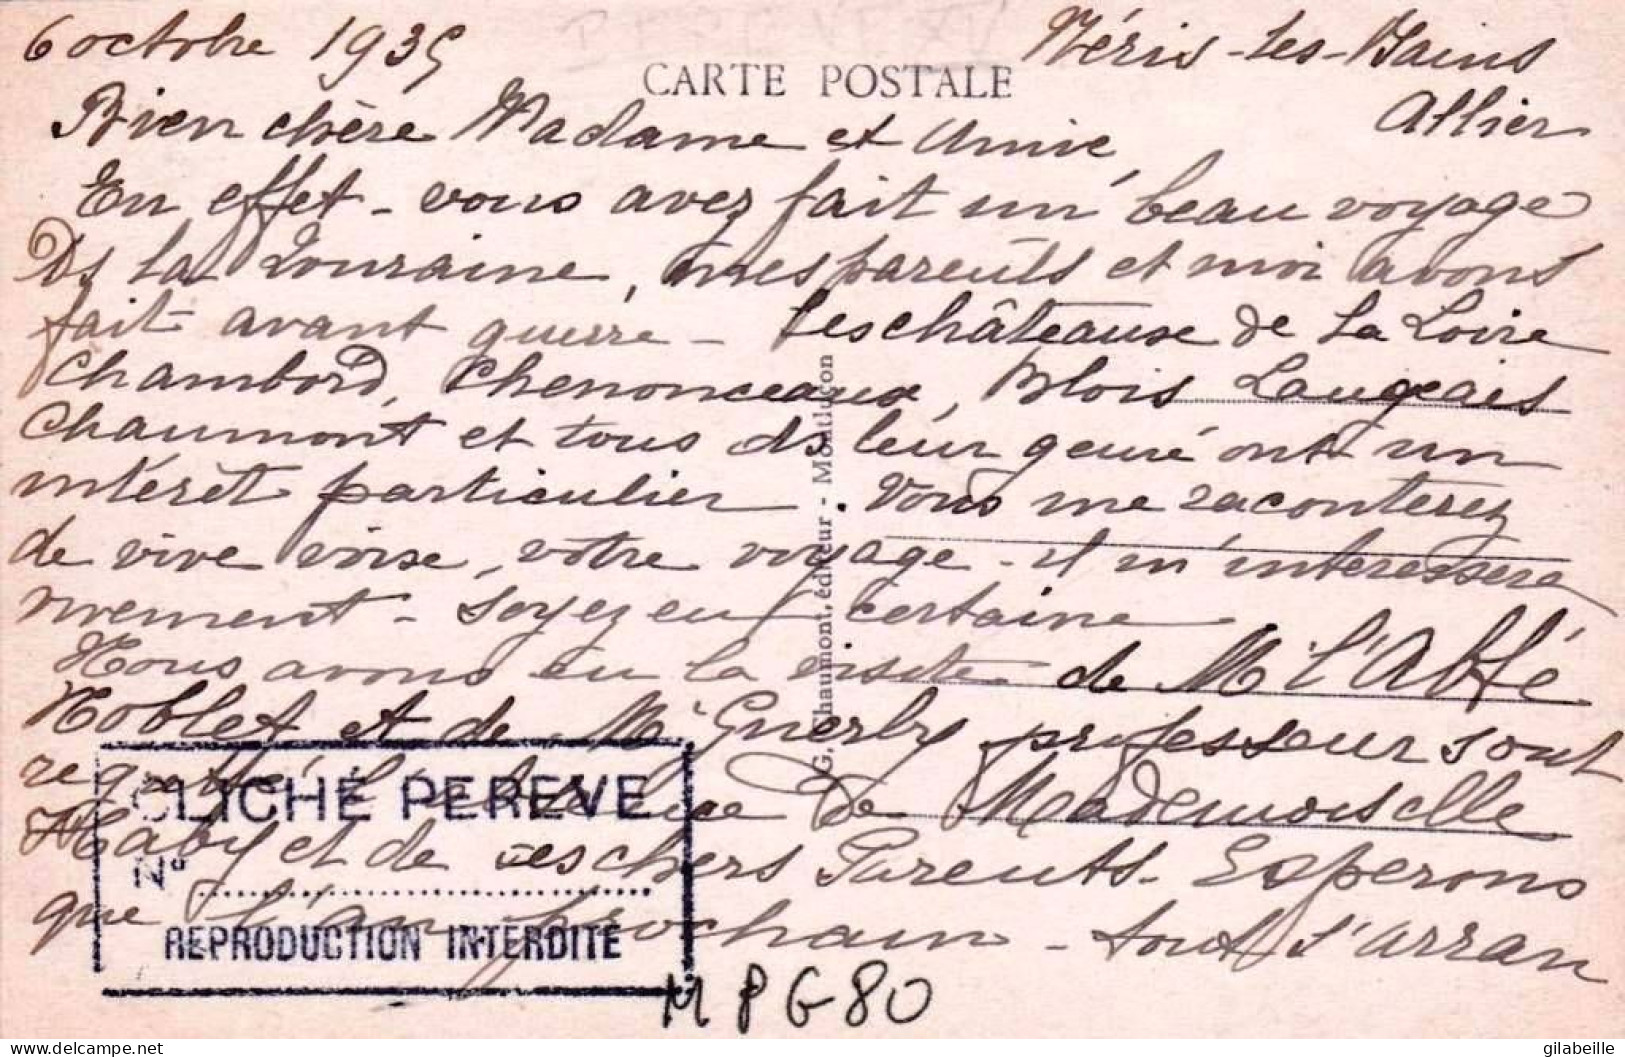 6 octobre 1935
Néris-les-Bains
CARTE POSTALE
Allier
Bien chère Madame et Amie,
En effet - vous avez fait un beau voyage
Ds la Touraine, mes parents et moi avons
fait avant guerre - les châteause de la Loire
Chambord, Chenonceaux, Blois Langeais
Chaumont et tous ds leur genre ont un
intérêt particulier. Vous me raconterez
de vive voise, votre voyage - il m'interessera
vivement - soyez en certaine
Nous avons eu la visite de M l'Abbé
Noblet et de Mr Guerby professeur sont
de Mademoiselle
Haby et de ses chers Parents. Esperons
que l'an prochain - tout s'arran
G. Chaumont, éditeur - Montluçon
CLICHÉ PEREVE
No
REPRODUCTION INTERDITE
M P G 80
delcampe.net
gilabeille